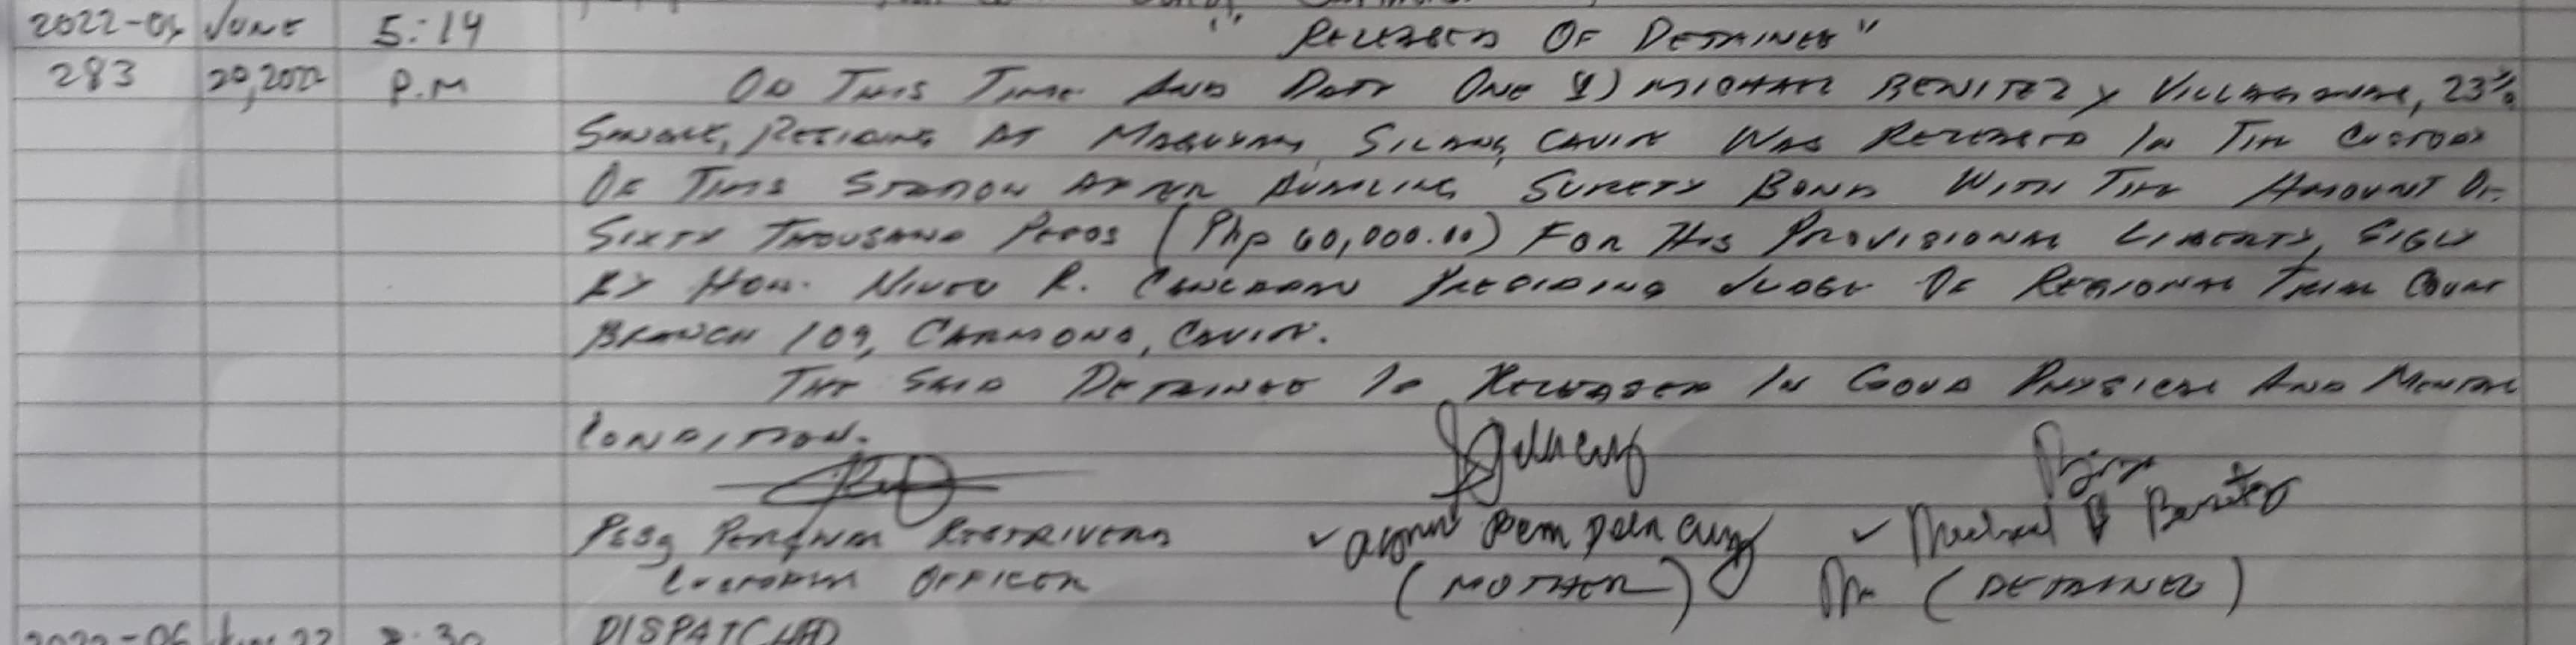 2022-06 JUNE 5:14 " RELEASED OF DETAINEE"
283 20, 2022 P.M ON THIS TIME AND DATE ONE 1) MICHAEL BENITEZ Y 23 y/o
SINGLE, RESIDING AT MAGUYAM, SILANG, CAVITE WAS RELEASED IN THE CUSTODY
OF THIS STATION AFTER AVAILING SURETY BOND WITH THE AMOUNT OF
SIXTY THOUSAND PESOS (Php 60,000.00) FOR HIS PROVISIONAL LIBERTY, SIGN
BY HON. R. PRESIDING JUDGE OF REGIONAL TRIAL COURT
BRANCH 109, CARMONA, CAVITE.
THE SAID DETAINEE IS RELEASED IN GOOD PHYSICAL AND MENTAL
CONDITION.
PSSg Michael Benitez
CUSTODIAN OFFICER (MOTHER) (DETAINEE)
2022-06 June 22 :30 DISPATCHED